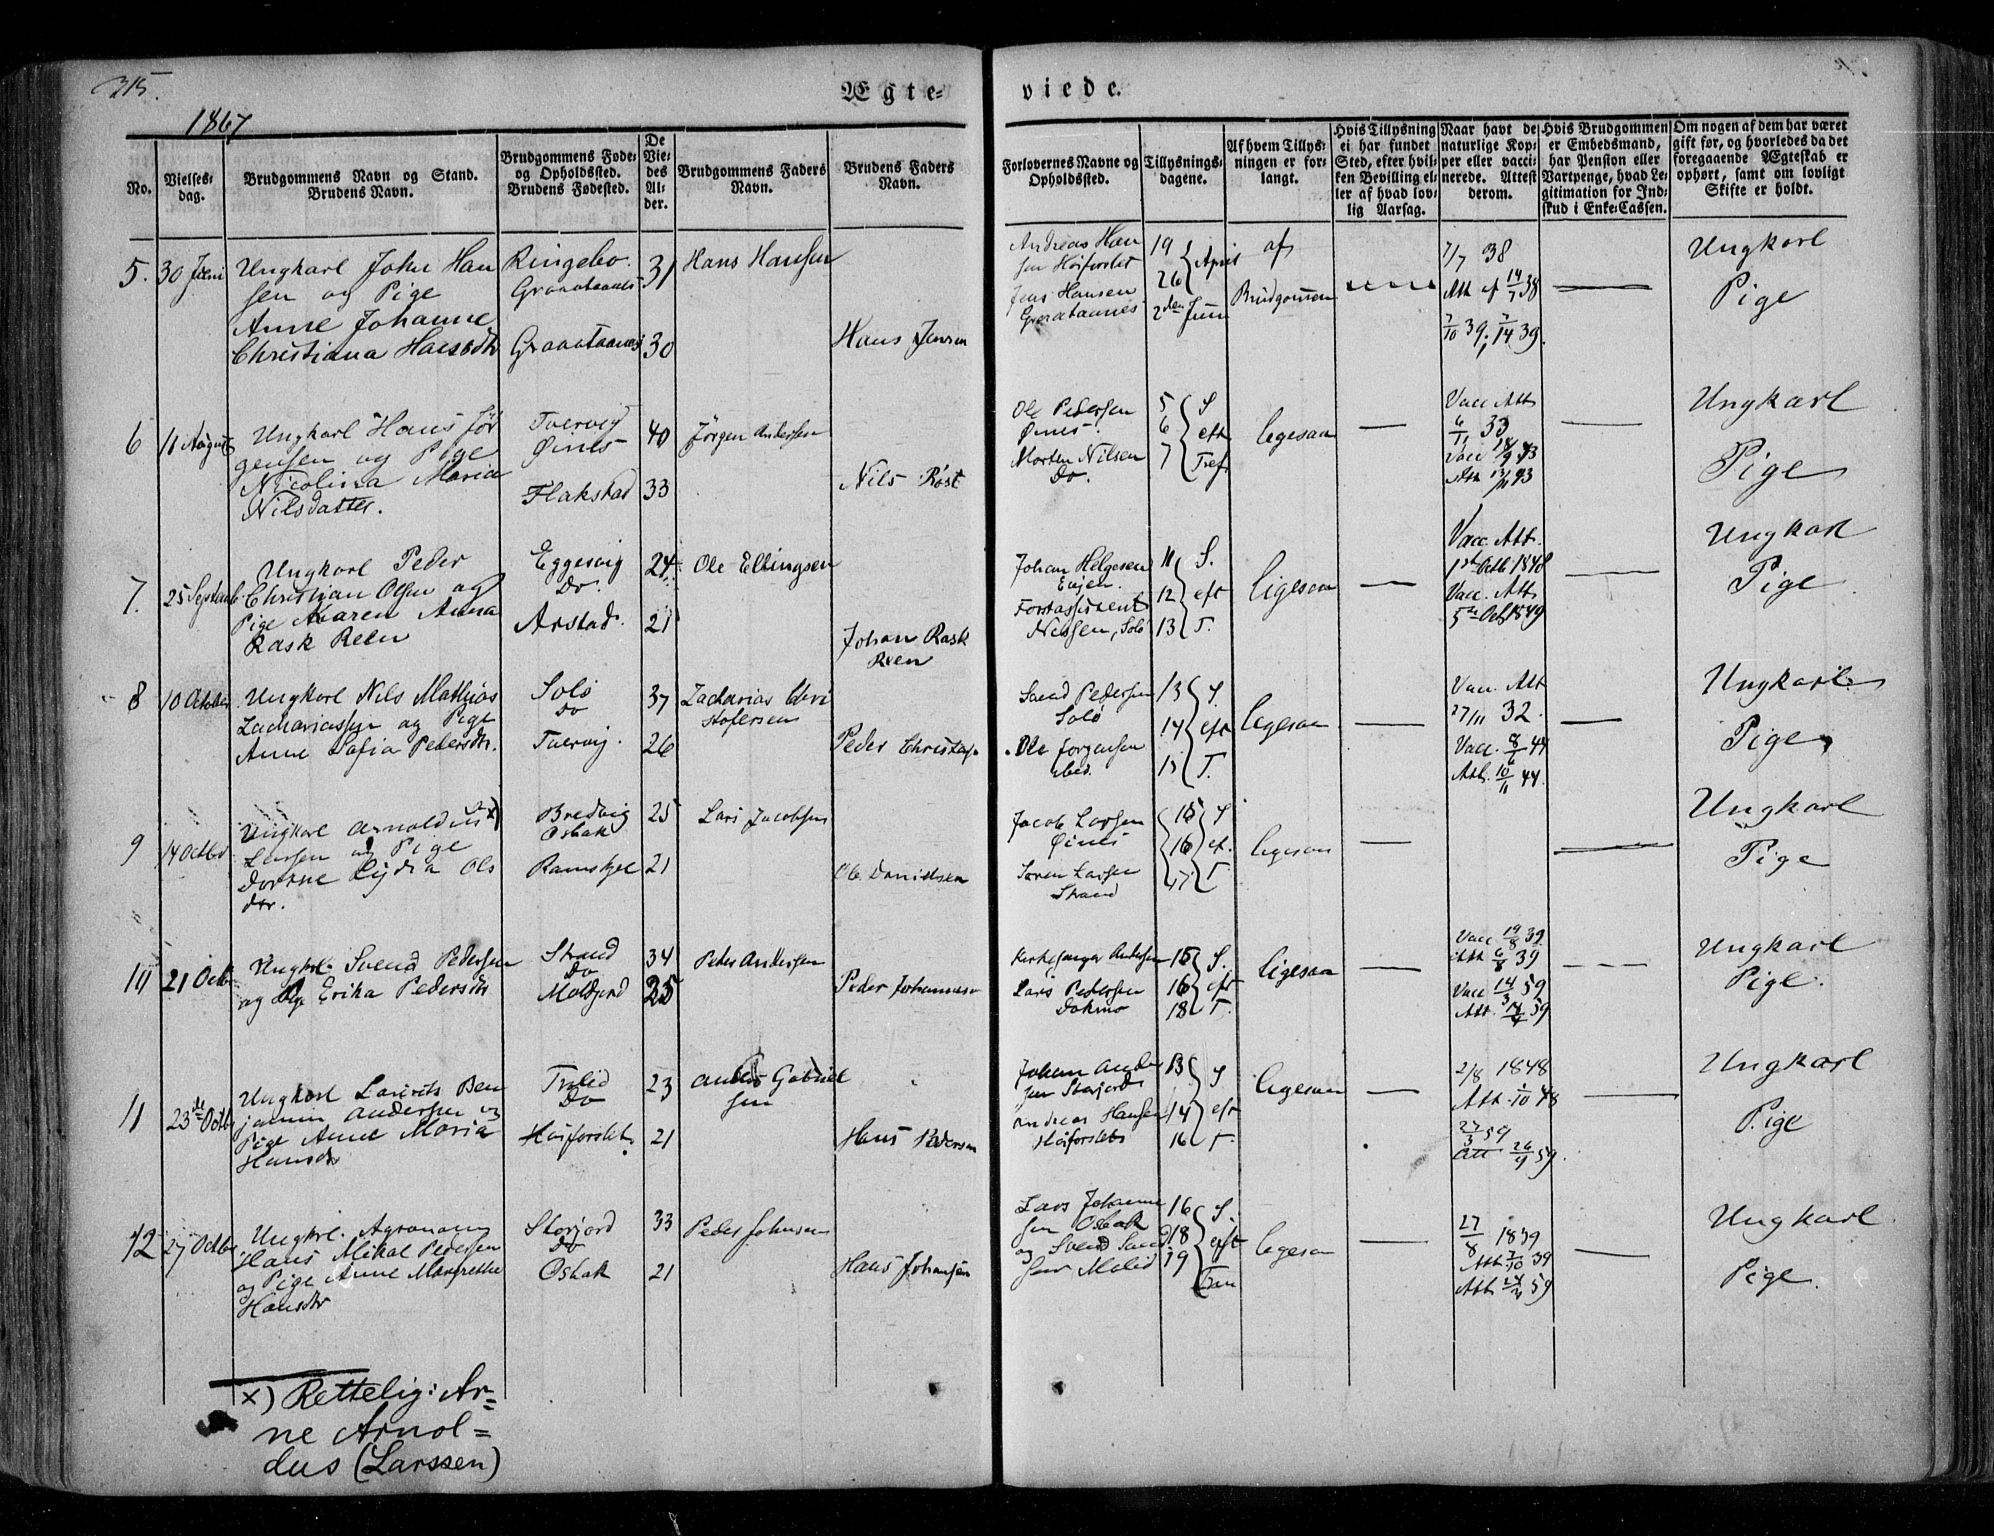 315.
Ægte-
viede.
1867
No.
Vielses-
dag.
Brudgommens Navn og Stand.
Brudens Navn.
Brudgommens Føde-
og Opholdssted.
Brudens Fødested.
De
Vie-
des
Al-
der.
Brudgommens Faders
Navn.
Brudens Faders
Navn.
Forlovernes Navne og
Opholdssted.
Tillysnings-
dagene.
Af hvem Tillys-
ningen er for-
langt.
Hvis Tillysning
ei har fundet
Sted, efter hvil-
ken Bevilling el-
ler af hvad lov-
lig Aarsag.
Naar havt de
naturlige Kop-
per eller vacci-
nerede. Attest
derom.
Hvis Brudgommen
er Embedsmand,
har Pension eller
Vartpenge, hvad Le-
gitimation for Ind-
skud i Enke-Cassen.
Om nogen af dem har været
gift før, og hvorledes da det
foregaaende Ægteskab er
ophørt, samt om lovligt
Skifte er holdt.
5.
30 Juni
Ungkarl John Han
sen og Pige
Anne Johanne
Christiana Hansdtr
Ringebo.
Graataanes
Graataanes
31
30
Hans Hansen
Hans Jensen
Andreas Han
sen Høiforslet
Jens Hansen
Graataanes
19
26 April
2den Juni
af
Brudgommen
7/7 38
Att af 14/7 38
Ungkarl
Pige
6
11 August
Ungkarl Hans Jør
gensen og Pige
Nicolina Maria
Nilsdatter.
Tvervig
Øines
Flakstad
40
33
Jørgen Andersen
Nils Røst
Ole Pedersen
Øines.
Morten Nilsen
Do.
5 S
6 eft
7 Tref
ligesaa
Vacc Att
6/11 33
Ungkarl
Pige
7.
25 Septemb.
Ungkarl Peder
Christian Olsen og
Pige Karen Anna
Rask Reen
Eggesvig
Do.
Arstad.
24
21
Ole Ellingsen
Johan Rask
Reen
Johan Helgesen
Enjen
Forstassistent
Nissen, Solø
11 S.
12 eft
13 T.
ligesaa
Vacc. Att.
1st Octb 1848
Vacc. Att
5te Oct 1849
Ungkarl
Pige
8
10 October
Ungkarl Nils Mathias
Zachariassen og Pige
Anne Sofia Pedersdtr.
Solø
do
Tvervig.
37
26
Zacharias Chri
stofersen
Peder Christof.
Svend Pedersen
Solø
Ole Jørgensen
ibid.
13 S.
14 eft
15 T.
ligesaa
Vacc. Att
27/11 32.
Vacc. 8/6 44
Att. 10/11 44.
Ungkarl
Pige
9
14 Octbr
Ungkarl Arnoldus x)
Larsen og Pige
Dorthe Lydia Ols
dtr.
Bredvig
Osbak
Ramskjel
25
21
Lars Jacobsen
Ole Danielsen
Jacob Larsen
Øines
Søren Larsen
Strand
15 S
16 ef.
17 T
ligesaa
Ungkarl
Pige
10
21 Octbr
Ungkrl. Svend Pedersen
og Pge Erika Pedersdtr
Strand
Do
Moldjord
34
25
Peder Andersen
Peder Johannesen
Kirkesanger Andersen
Lars Pedersen
Dokmo
15 S.
16 eft
18 T.
ligesaa
Vacc 19/8 39
Att 6/8 39
Vacc 14/3 59
Att. 14/4 59
Ungkarl
Pige.
11
23de Octbr
Ungkarl Lauvits Ben
jamin Andersen og
Pige Anne Maria
Hansdtr
Trolid
Do
Høiforslet
23
21
Anders Gabriel
sen
Hans Pedersen
Johan Ander
sen Storjord
Andreas Hansen
Høiforslet
13 S
14 eft
16 T.
ligesaa
2/8 1848
Att. 1/10 48
27/3 59
Att 26/9 59.
Ungkarl
Pige
12
27 Octbr
Ungkrl. Agronom
Hans Mikal Pedersen
og Pige Anne Margrethe
Hansdtr
Storjord
Do
Osbak
33
21
Peder Johnsen
Hans Johansen
Lars Johanne
sen Osbak
og Svend Svend
sen Molid
16 S.
18 eft
19 Tren
ligesaa
27/8 1839
Att 7/10 39
Att 24/4 59
Ungkarl
Pige.
x) Rettelig: Ar=
ne Arnol=
dus (Larssen)